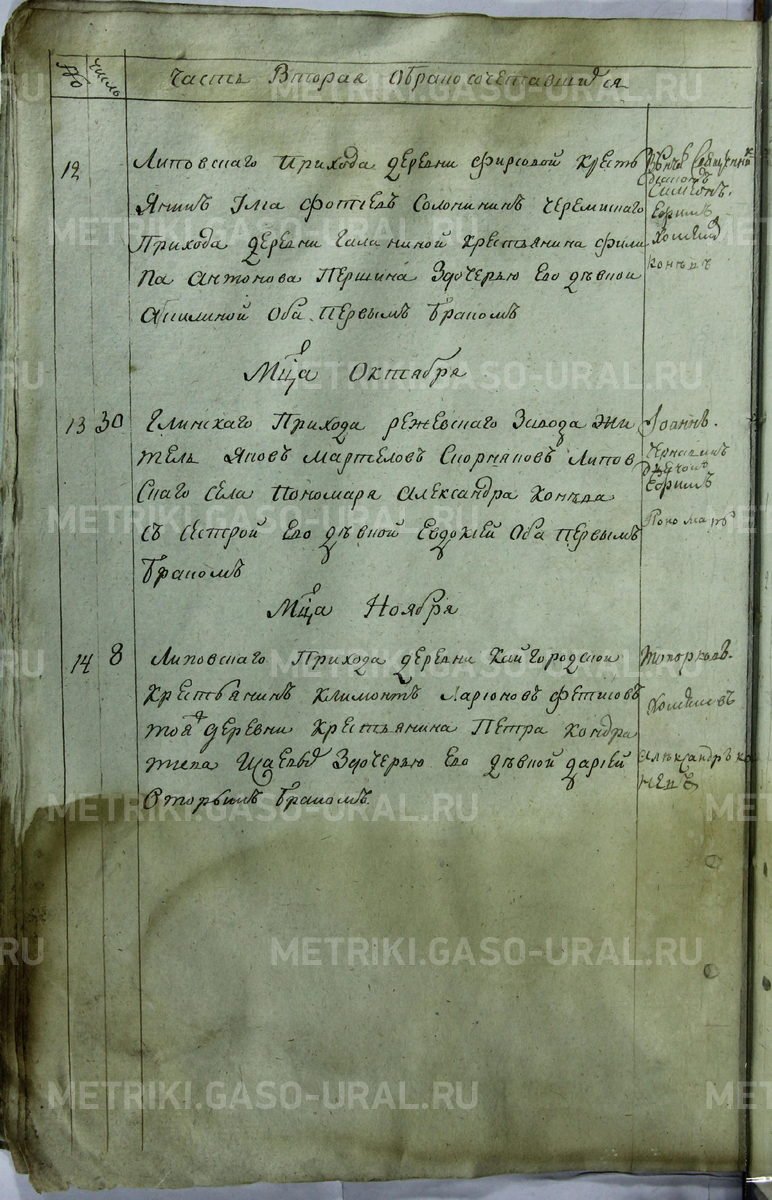 № число Часть Вторая О бракосочетавшихся
12 Липовскаго прихода деревни Фирсовой кресть
янинъ Фотиевъ Солонининъ Черемискаго
прихода деревни Галаниной крестьянина Фили
па Антонова Першина Здочерью Его дѣвкой
Акилиной Оба первымъ бракомъ
Симеонъ.
Ефримъ
Мца Октября
13 30 Глинскаго прихода режевскаго завода жи
тель Яковъ Мартемов Скорняковъ Липов
скаго села пономаря Александра Конева
съ сестрой Его дѣвкой Евдокией Оба первымъ
бракомъ
Iоаннъ.
Ефримъ
Пономарь
Мца Ноября
14 8 Липовскаго прихода деревни Кайгородской
крестьянинъ Климонтъ Ларионовъ Фетисовъ
тояж деревни крестьянина Петра Кондра
Здочерью Его дѣвкой дарьей
Вторымъ бракомъ
Топорковъ.
Александръ Ко
невъ
METRIKI.GASO-URAL.RU